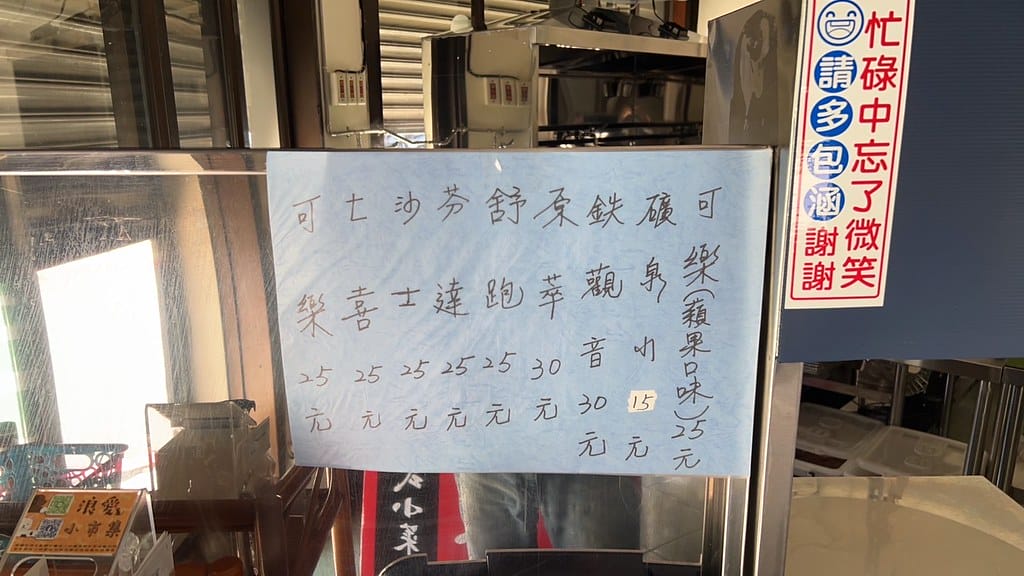 忙碌中忘了微笑
請多包涵謝謝
可樂(蘋果口味)25元
礦泉水15元
鉄觀音30元
原萃30元
舒跑25元
芬達25元
沙士25元
七喜25元
可樂25元
小菜
浪愛
小市集